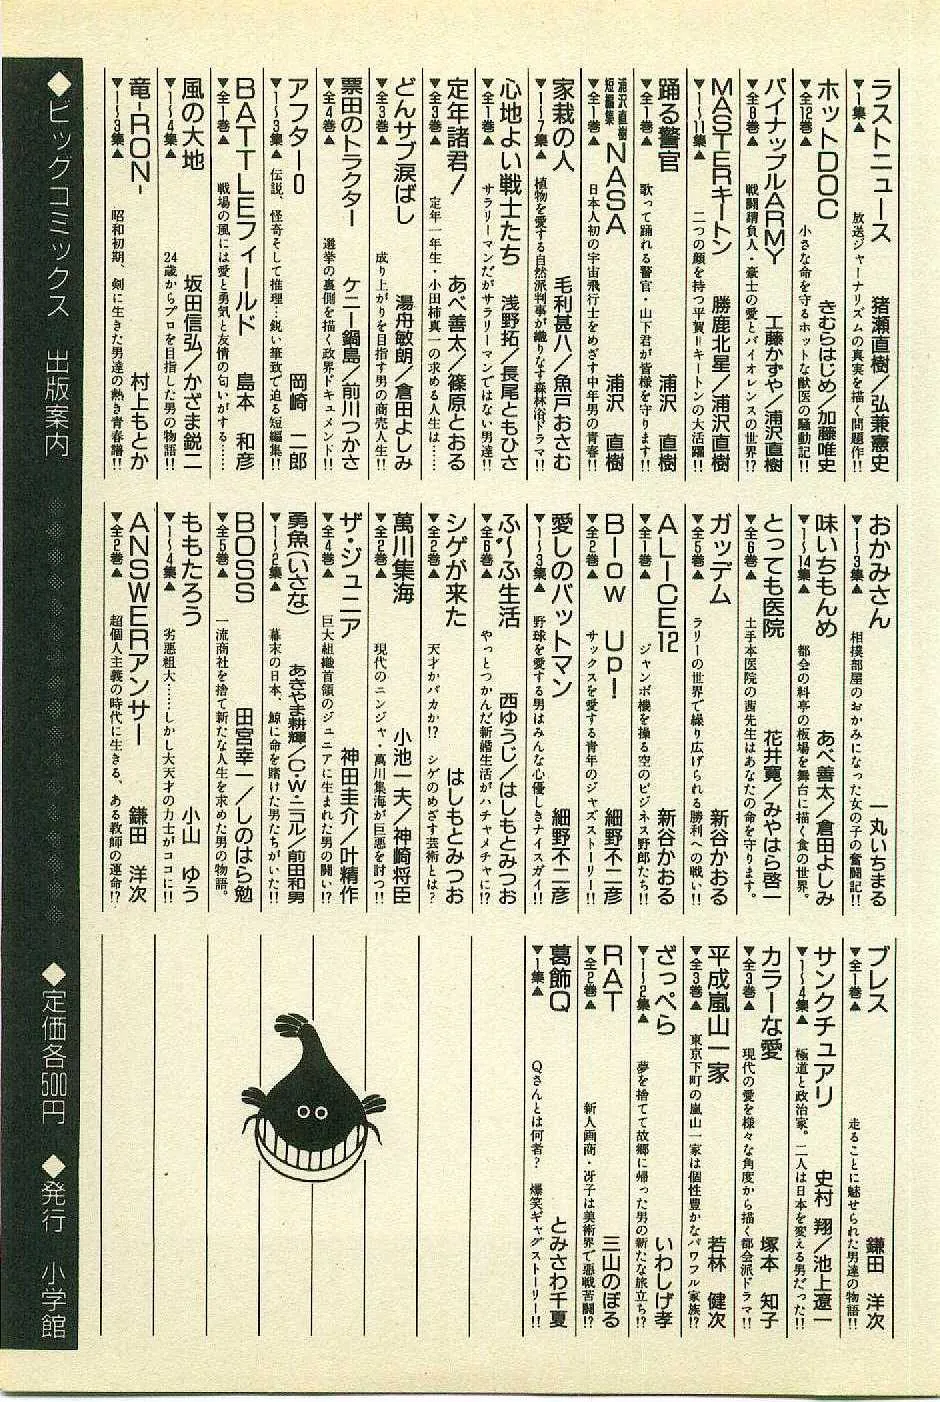 ◆ビッグコミックス 出版案内
ラストニュース
▼1集▲
猪瀬直樹／弘兼憲史
放送ジャーナリズムの真実を描く問題作!!
ホットDOC
▼全12巻▲
きむらはじめ／加藤唯史
小さな命を守るホットな獣医の騒動記!!
パイナップルARMY
▼全8巻▲
工藤かずや／浦沢直樹
戦闘請負人・豪士の愛とバイオレンスの世界!?
MASTERキートン
▼1〜11集▲
勝鹿北星／浦沢直樹
二つの顔を持つ平賀＝キートンの大活躍!!
踊る警官
▼全1巻▲
浦沢 直樹
歌って踊れる警官・山下君が皆様を守ります!!
浦沢直樹短編集 NASA
▼全1巻▲
浦沢 直樹
日本人初の宇宙飛行士をめざす中年男の青春!!
家栽の人
▼1〜7集▲
毛利甚八／魚戸おさむ
植物を愛する自然派判事が織りなす森林浴ドラマ!!
心地よい戦士たち
▼全1巻▲
浅野拓／長尾ともひさ
サラリーマンだがサラリーマンではない男達!!
定年諸君!
▼全3巻▲
あべ善太／篠原とおる
定年一年生・小田柿真一の求める人生は……
どんサブ涙ばし
▼全3巻▲
湯舟敏朗／倉田よしみ
成り上がりを目指す男の商売人生!!
票田のトラクター
▼全4巻▲
ケニー鍋島／前川つかさ
選挙の裏側を描く政界ドキュメンド!!
アフター0
▼1〜3集▲
岡崎 二郎
伝説、怪奇そして推理…鋭い筆致で迫る短編集!!
BATTLEフィールド
▼全1巻▲
島本 和彦
戦場の風には愛と勇気と友情の匂いがする……
風の大地
▼1〜4集▲
坂田信弘／かざま鋭二
24歳からプロを目指した男の物語!!
竜-RON-
▼1〜3集▲
村上もとか
昭和初期、剣に生きた男達の熱き青春譜!!
おかみさん
▼1〜3集▲
一丸いちまる
相撲部屋のおかみになった女の子の奮闘記!!
味いちもんめ
▼1〜14集▲
あべ善太／倉田よしみ
都会の料亭の板場を舞台に描く食の世界。
とっても医院
▼全6巻▲
花井寛／みやはら啓一
土手本医院の茜先生はあなたの命を守ります。
ガッデム
▼全5巻▲
新谷かおる
ラリーの世界で繰り広げられる勝利への戦い!!
ALICE12
▼全1巻▲
新谷かおる
ジャンボ機を操る空のビジネス野郎たち!!
Blow Up!
▼全2巻▲
細野不二彦
サックスを愛する青年のジャズストーリー!!
愛しのバットマン
▼1〜3集▲
細野不二彦
野球を愛する男はみんな心優しきナイスガイ!!
ふ〜ふ生活
▼全6巻▲
西ゆうじ／はしもとみつお
やっとつかんだ新婚生活がハチャメチャに!?
シゲが来た
▼全2巻▲
はしもとみつお
天才かバカか!? シゲのめざす芸術とは?
萬川集海
▼全2巻▲
小池一夫／神崎将臣
現代のニンジャ・萬川集海が巨悪を討つ!!
ザ・ジュニア
▼全4巻▲
神田圭介／叶精作
巨大組織首領のジュニアに生まれた男の闘い!?
勇魚(いさな)
▼1〜2集▲
あきやま耕輝／C・W・ニコル／前田和男
幕末の日本、鯨に命を賭けた男たちがいた!!
BOSS
▼全5巻▲
田宮幸一／しのはら勉
一流商社を捨て新たな人生を求めた男の物語。
ももたろう
▼1〜4集▲
小山 ゆう
劣悪粗大……しかし大天才の力士がココに!!
ANSWERアンサー
▼全2巻▲
鎌田 洋次
超個人主義の時代に生きる、ある教師の運命!?
ブレス
▼全1巻▲
鎌田 洋次
走ることに魅せられた男達の物語!!
サンクチュアリ
▼1〜4集▲
史村 翔／池上遼一
極道と政治家。二人は日本を変える男だった!!
カラーな愛
▼全3巻▲
塚本 知子
現代の愛を様々な角度から描く都会派ドラマ!!
平成嵐山一家
▼全3巻▲
若林 健次
東京下町の嵐山一家は個性豊かなパワフル家族!?
ざっぺら
▼1〜2集▲
いわしげ孝
夢を捨てて故郷に帰った男の新たな旅立ち!?
RAT
▼全2巻▲
三山のぼる
新人画商・冴子は美術界で悪戦苦闘!?
葛飾Q
▼1集▲
とみさわ千夏
Qさんとは何者? 爆笑ギャグストーリー!!
◆定価各500円 ◆発行 小学館